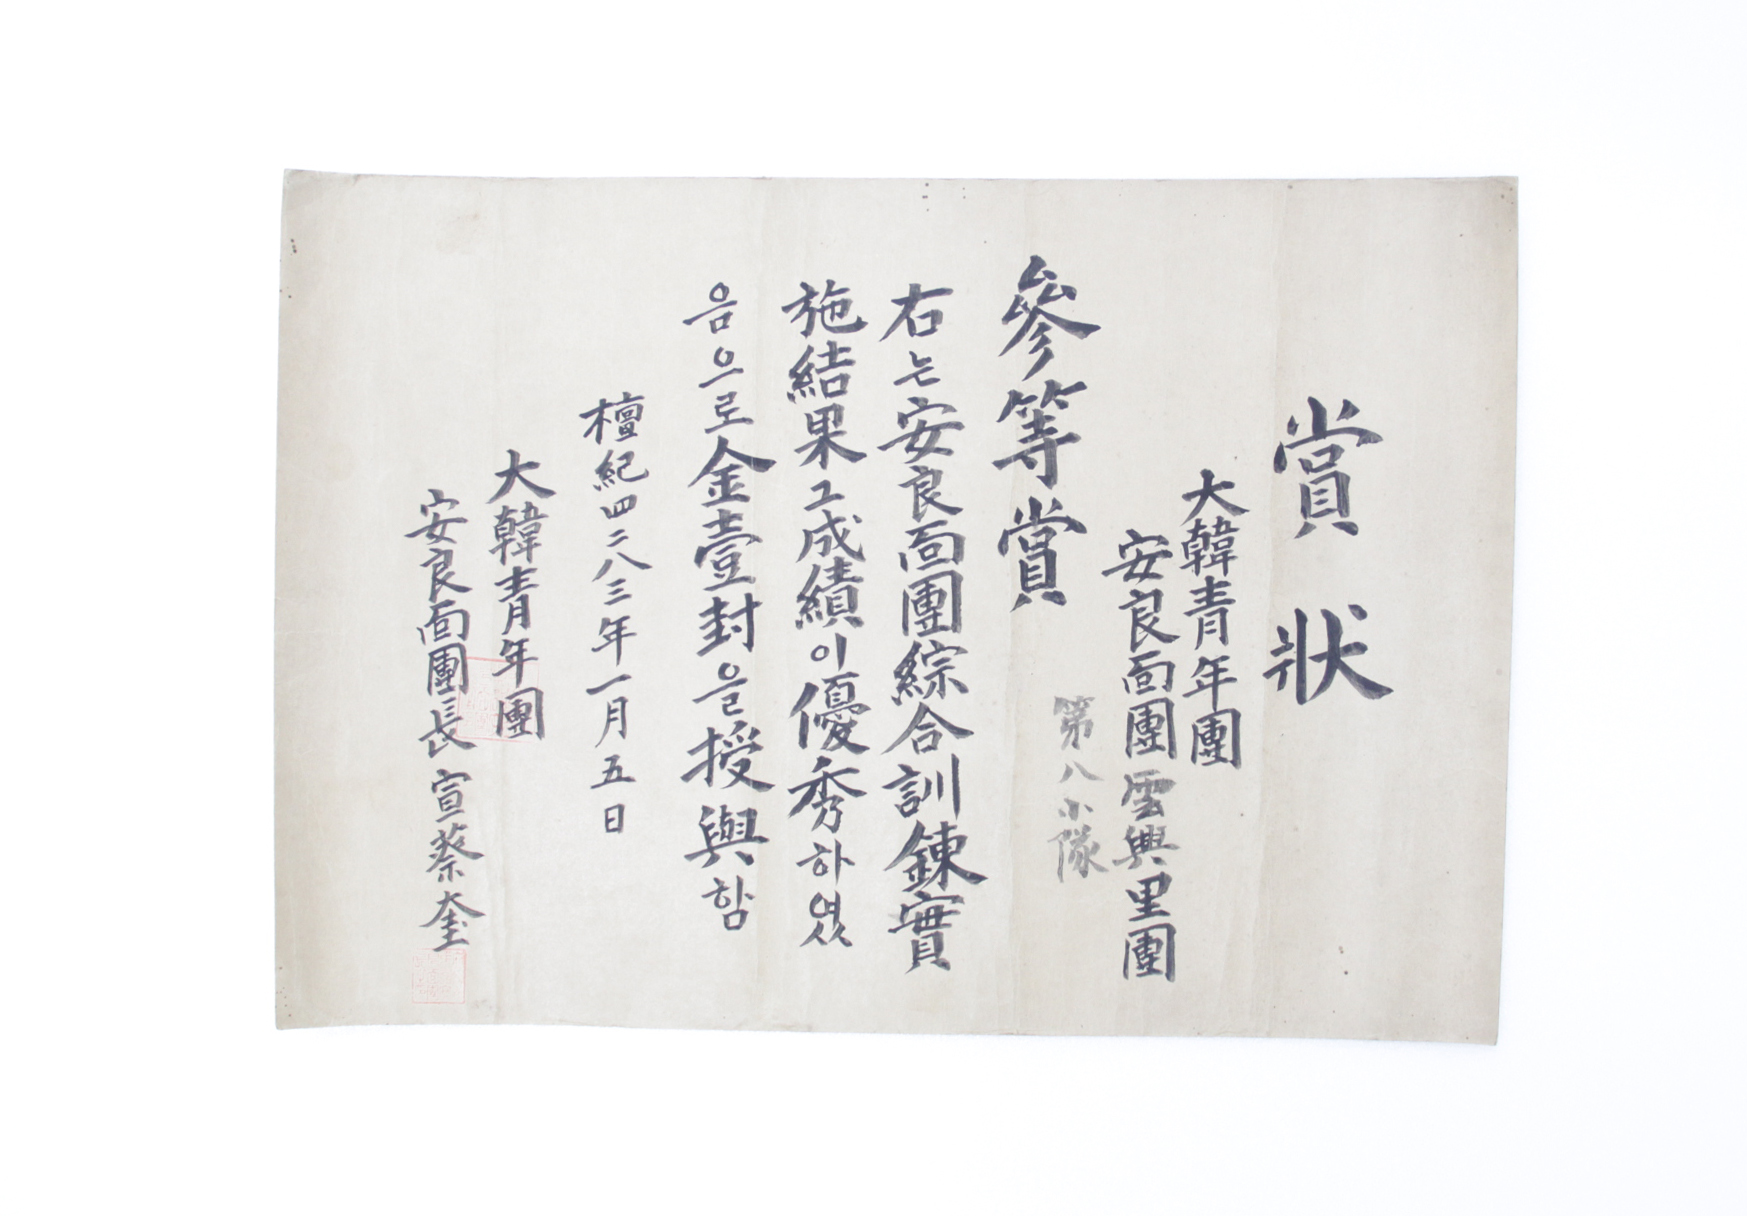 賞狀
大韓青年團
安良面團雲興里團
第八小隊
參等賞
右는安良面團綜合訓鍊實
施結果그成績이優秀하였
음으로金壹封을授與함
檀紀四二八三年一月五日
大韓青年團
安良面團長 宣蔡奎